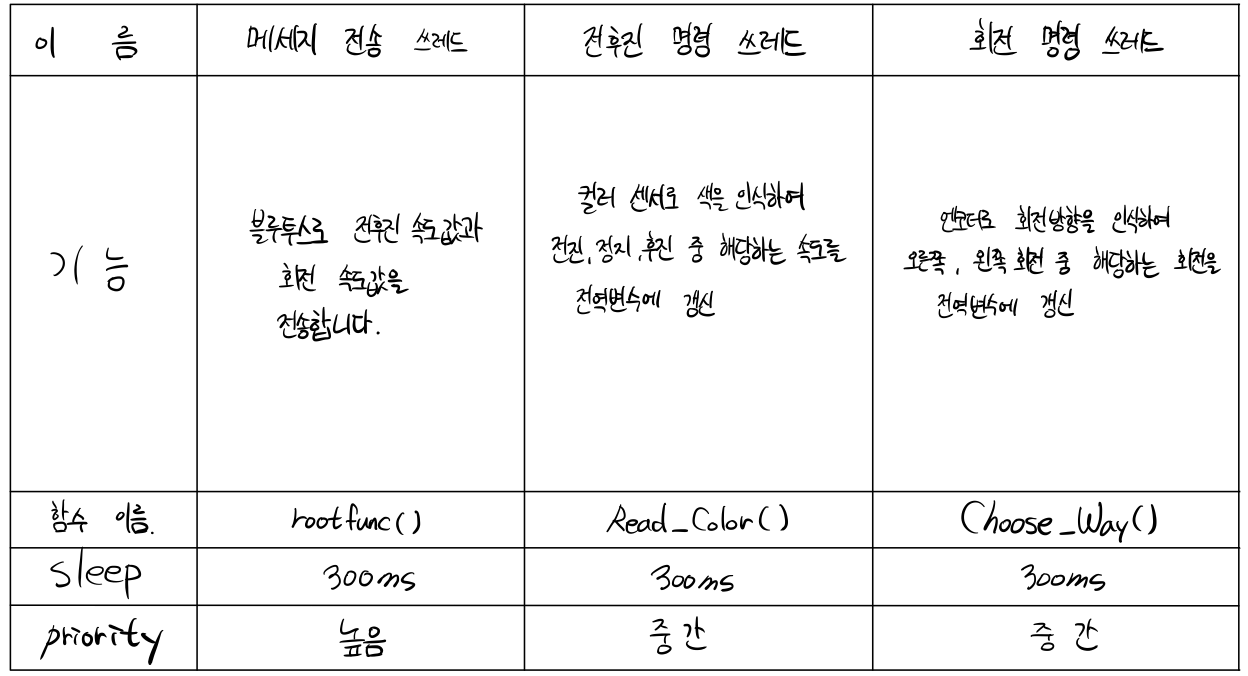 이 름 메세지 전송 쓰레드 전후진 명령 쓰레드 회전 명령 쓰레드
기 능
블루투스로 전후진 속도값과
회전 속도값을
전송합니다.
컬러 센서로 색을 인식하여
전진, 정지, 후진 중 해당하는 속도를
전역변수에 갱신
엔코더로 회전방향을 인식하여
오른쪽, 왼쪽 회전 중 해당하는 회전을
전역변수에 갱신
함수 이름. rootfunc() Read_Color() Choose_Way()
sleep 300ms 300ms 300ms
priority 높음 중간 중간